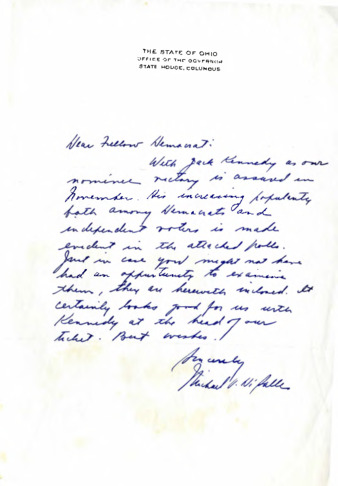 THE STATE OF OHIO
OFFICE OF THE GOVERNOR
STATE HOUSE, COLUMBUS
Dear Fellow Democrat:
With Jack Kennedy as our
nominee victory is assured in
November. His increasing popularity
both among Democrats and
independent voters is made
evident in the attached polls.
Just in case you might not have
had an opportunity to examine
them, they are herewith inclosed. It
certainly looks good for us with
Kennedy at the head of our
ticket. Best wishes.
Sincerely
Michael V. DiSalle